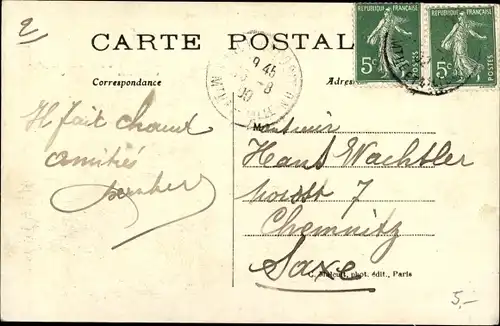 2
CARTE POSTALE
Correspondance
RÉPUBLIQUE FRANÇAISE
5c
POSTES
RÉPUBLIQUE FRANÇAISE
5c
POSTES
9 45
Il fait chaud
amitiés
Monsieur
Hans Wachtler
7
Chemnitz
Saxe
phot. édit., Paris
5.-